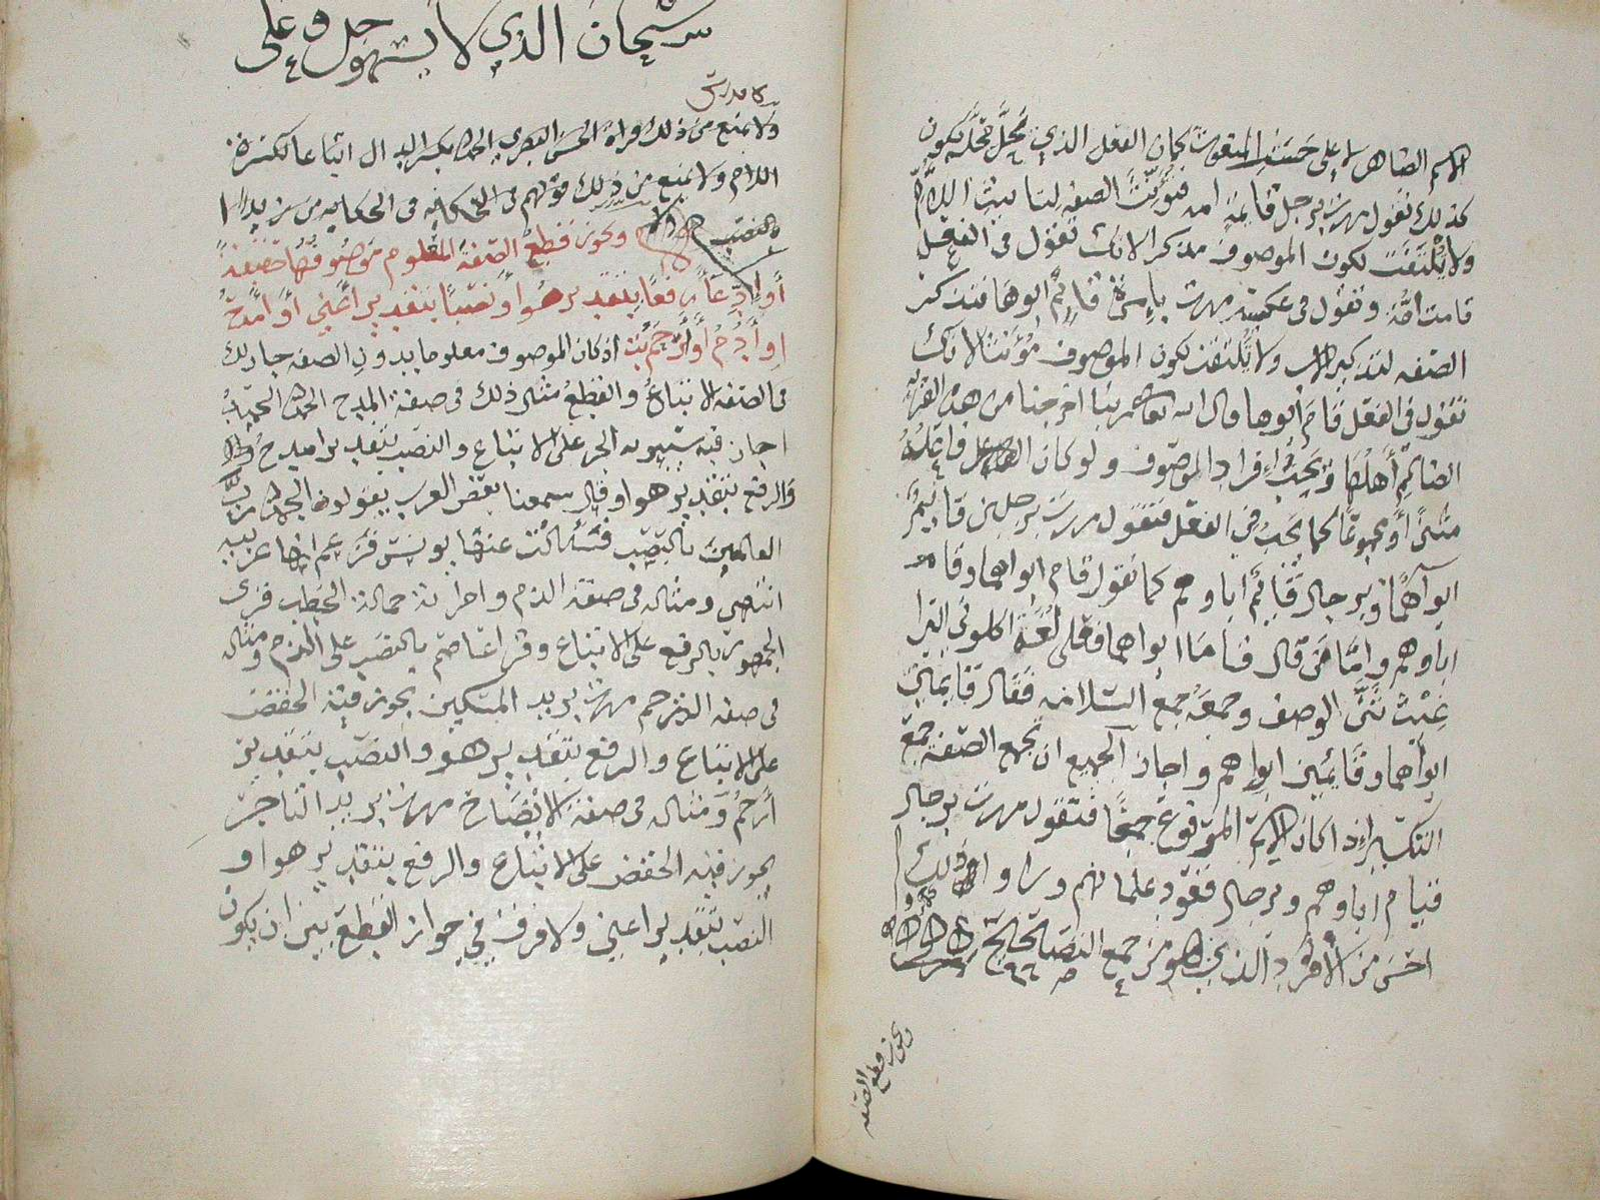 الاسم الظاهر لا على حسب المنعوت كما ان الفعل الذي يحل محله يكون
كذلك تقول مررت برجل قائمة امه فتؤنث الصفة لتانيث الام
ولا يلتفت لكون الموصوف مذكرا لانك تقول في الفعل
قامت امه وتقول في عكسه مررت بامرأة قائم ابوها فتذكر
الصفه لتذكير الاب ولا يلتفت لكون الموصوف مؤنثا لانك
تقول في الفعل قام أبوها قال الله تعالى ربنا اخرجنا من هذه القرية
الظالم أهلها ويجب إفراد الوصف ولو كان الفاعل
مثنى أو مجموعا كما يجب في الفعل فتقول مررت برجلين قائم
ابواهما وبرجال قائم اباوهم كما تقول قام ابواهما وقام
اباوهم واما من قال قاما ابواهما فعلى لغة اكلوني البرا
غيث ثنى الوصف وجمعه جمع السلامه فقال قائمين
ابواهما وقائمين اباوهم واجاز الجميع ان تجمع الصفة جمع
التكسير اذا كان الاسم المرفوع جمعا فتقول مررت برجال
قيام اباوهم وبرجال قعود غلمانهم وراوا ان ذلك
احسن من الأفراد الذي هو من جمع التصحيح
ويجوز قطع الصفه
سبحان الذي لا يسهو جل وعلى
ولا يمنع من ذلك قراة الحسن البصري الحمد بكسر الدال اتباعا لكسرة
اللام ولا يمنع من ذلك قولهم في الحكايه من زيدا
بالنصب ويجوز قطع الصفة المعلوم موصوفها حقيقة
أو ادعاء رفعا بتقدير هو أو نصبا بتقدير أعني أو أمدح
او أذم أو أرحم اذ كان الموصوف معلوما بدون الصفه جاز لك
في الصفه الاتباع والقطع مثال ذلك في صفة المدح الحمد لله الحميد
اجاز فيه سيبويه الجر على الاتباع والنصب بتقدير امدح
والرفع بتقدير هو او قال سمعنا بعض العرب يقولون الحمد لله رب
العالمين بالنصب فسألت عنها يونس فزعم انها عربيه
انتهى ومثاله في صفة الذم وامراته حمالة الحطب قرى
الجمهور بالرفع على الاتباع وقرا عاصم بالنصب على الذم ومثاله
في صفه الترحم مررت بزيد المسكين يجوز فيه الخفض
على الاتباع والرفع بتقدير هو والنصب بتقدير
أرحم ومثاله في صفة الايضاح مررت بزيد التاجر
يجوز فيه الخفض على الاتباع والرفع بتقدير هو او
النصب بتقدير اعني ولا فرق في جواز القطع بين ان يكون